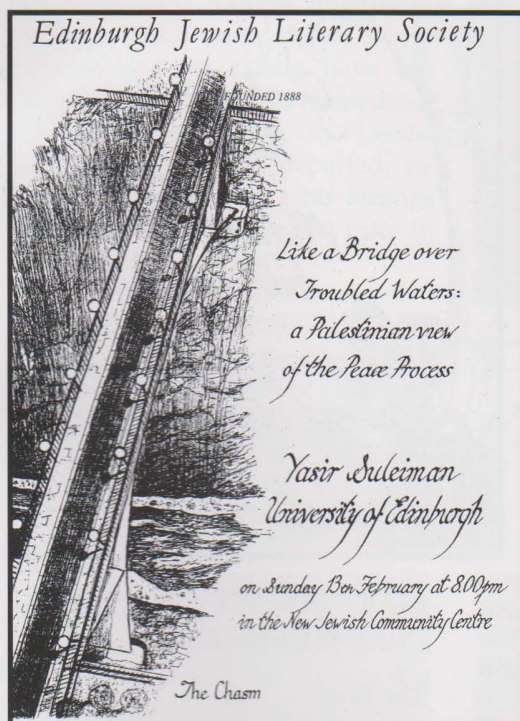 Edinburgh Jewish Literary Society
FOUNDED 1888
Like a Bridge over
Troubled Waters:
a Palestinian view
of the Peace Process
Yasir Suleiman
University of Edinburgh
on Sunday 13th February at 8.00pm
in the New Jewish Community Centre
The Chasm